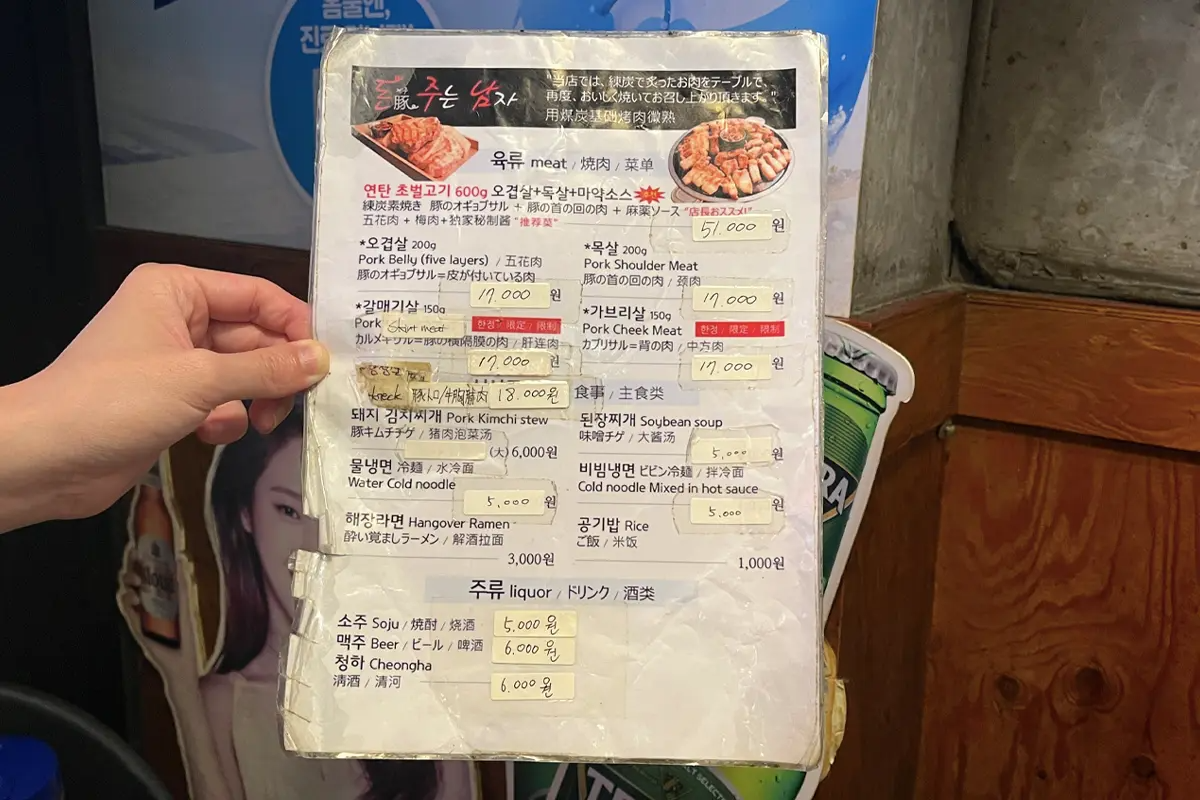 몸쿨헨,
돈豚 주는 남자
"当店では、練炭で炙ったお肉をテーブルで、
再度、おいしく焼いてお召し上がり頂きます。"
用煤炭基础烤肉微熟
육류 meat / 焼肉 / 菜单
연탄 초벌고기 600g 오겹살+목살+마약소스
練炭素焼き 豚のオギョプサル + 豚の首の回の肉 + 麻薬ソース "店長おススメ!"
五花肉 + 梅肉+独家秘制酱 "推荐菜"
51.000 원
*오겹살 200g
Pork Belly (five layers) / 五花肉
豚のオギョプサル=皮が付いている肉
17.000 원
*목살 200g
Pork Shoulder Meat
豚の首の回の肉 / 颈肉
17.000 원
*갈매기살 150g
Pork Skirt meat 한정 / 限定 / 限制
カルメギサル=豚の横隔膜の肉 / 肝连肉
17.000 원
*가브리살 150g
Pork Cheek Meat 한정 / 限定 / 限制
カブリサル=背の肉 / 中方肉
17.000 원
18.000원
食事 / 主食类
돼지 김치찌개 Pork Kimchi stew
豚キムチチゲ / 猪肉泡菜汤
(大) 6,000원
된장찌개 Soybean soup
味噌チゲ / 大酱汤
5,000 원
물냉면 冷麺 / 水冷面
Water Cold noodle
5,000 원
비빔냉면 ビビン冷麺 / 拌冷面
Cold noodle Mixed in hot sauce
5,000 원
해장라면 Hangover Ramen
酔い覚ましラーメン / 解酒拉面
3,000원
공기밥 Rice
ご飯 / 米饭
1,000원
주류 liquor / ドリンク / 酒类
소주 Soju / 焼酎 / 烧酒 5.000 원
맥주 Beer / ビール / 啤酒 6.000 원
청하 Cheongha
清酒 / 清河 6.000 원